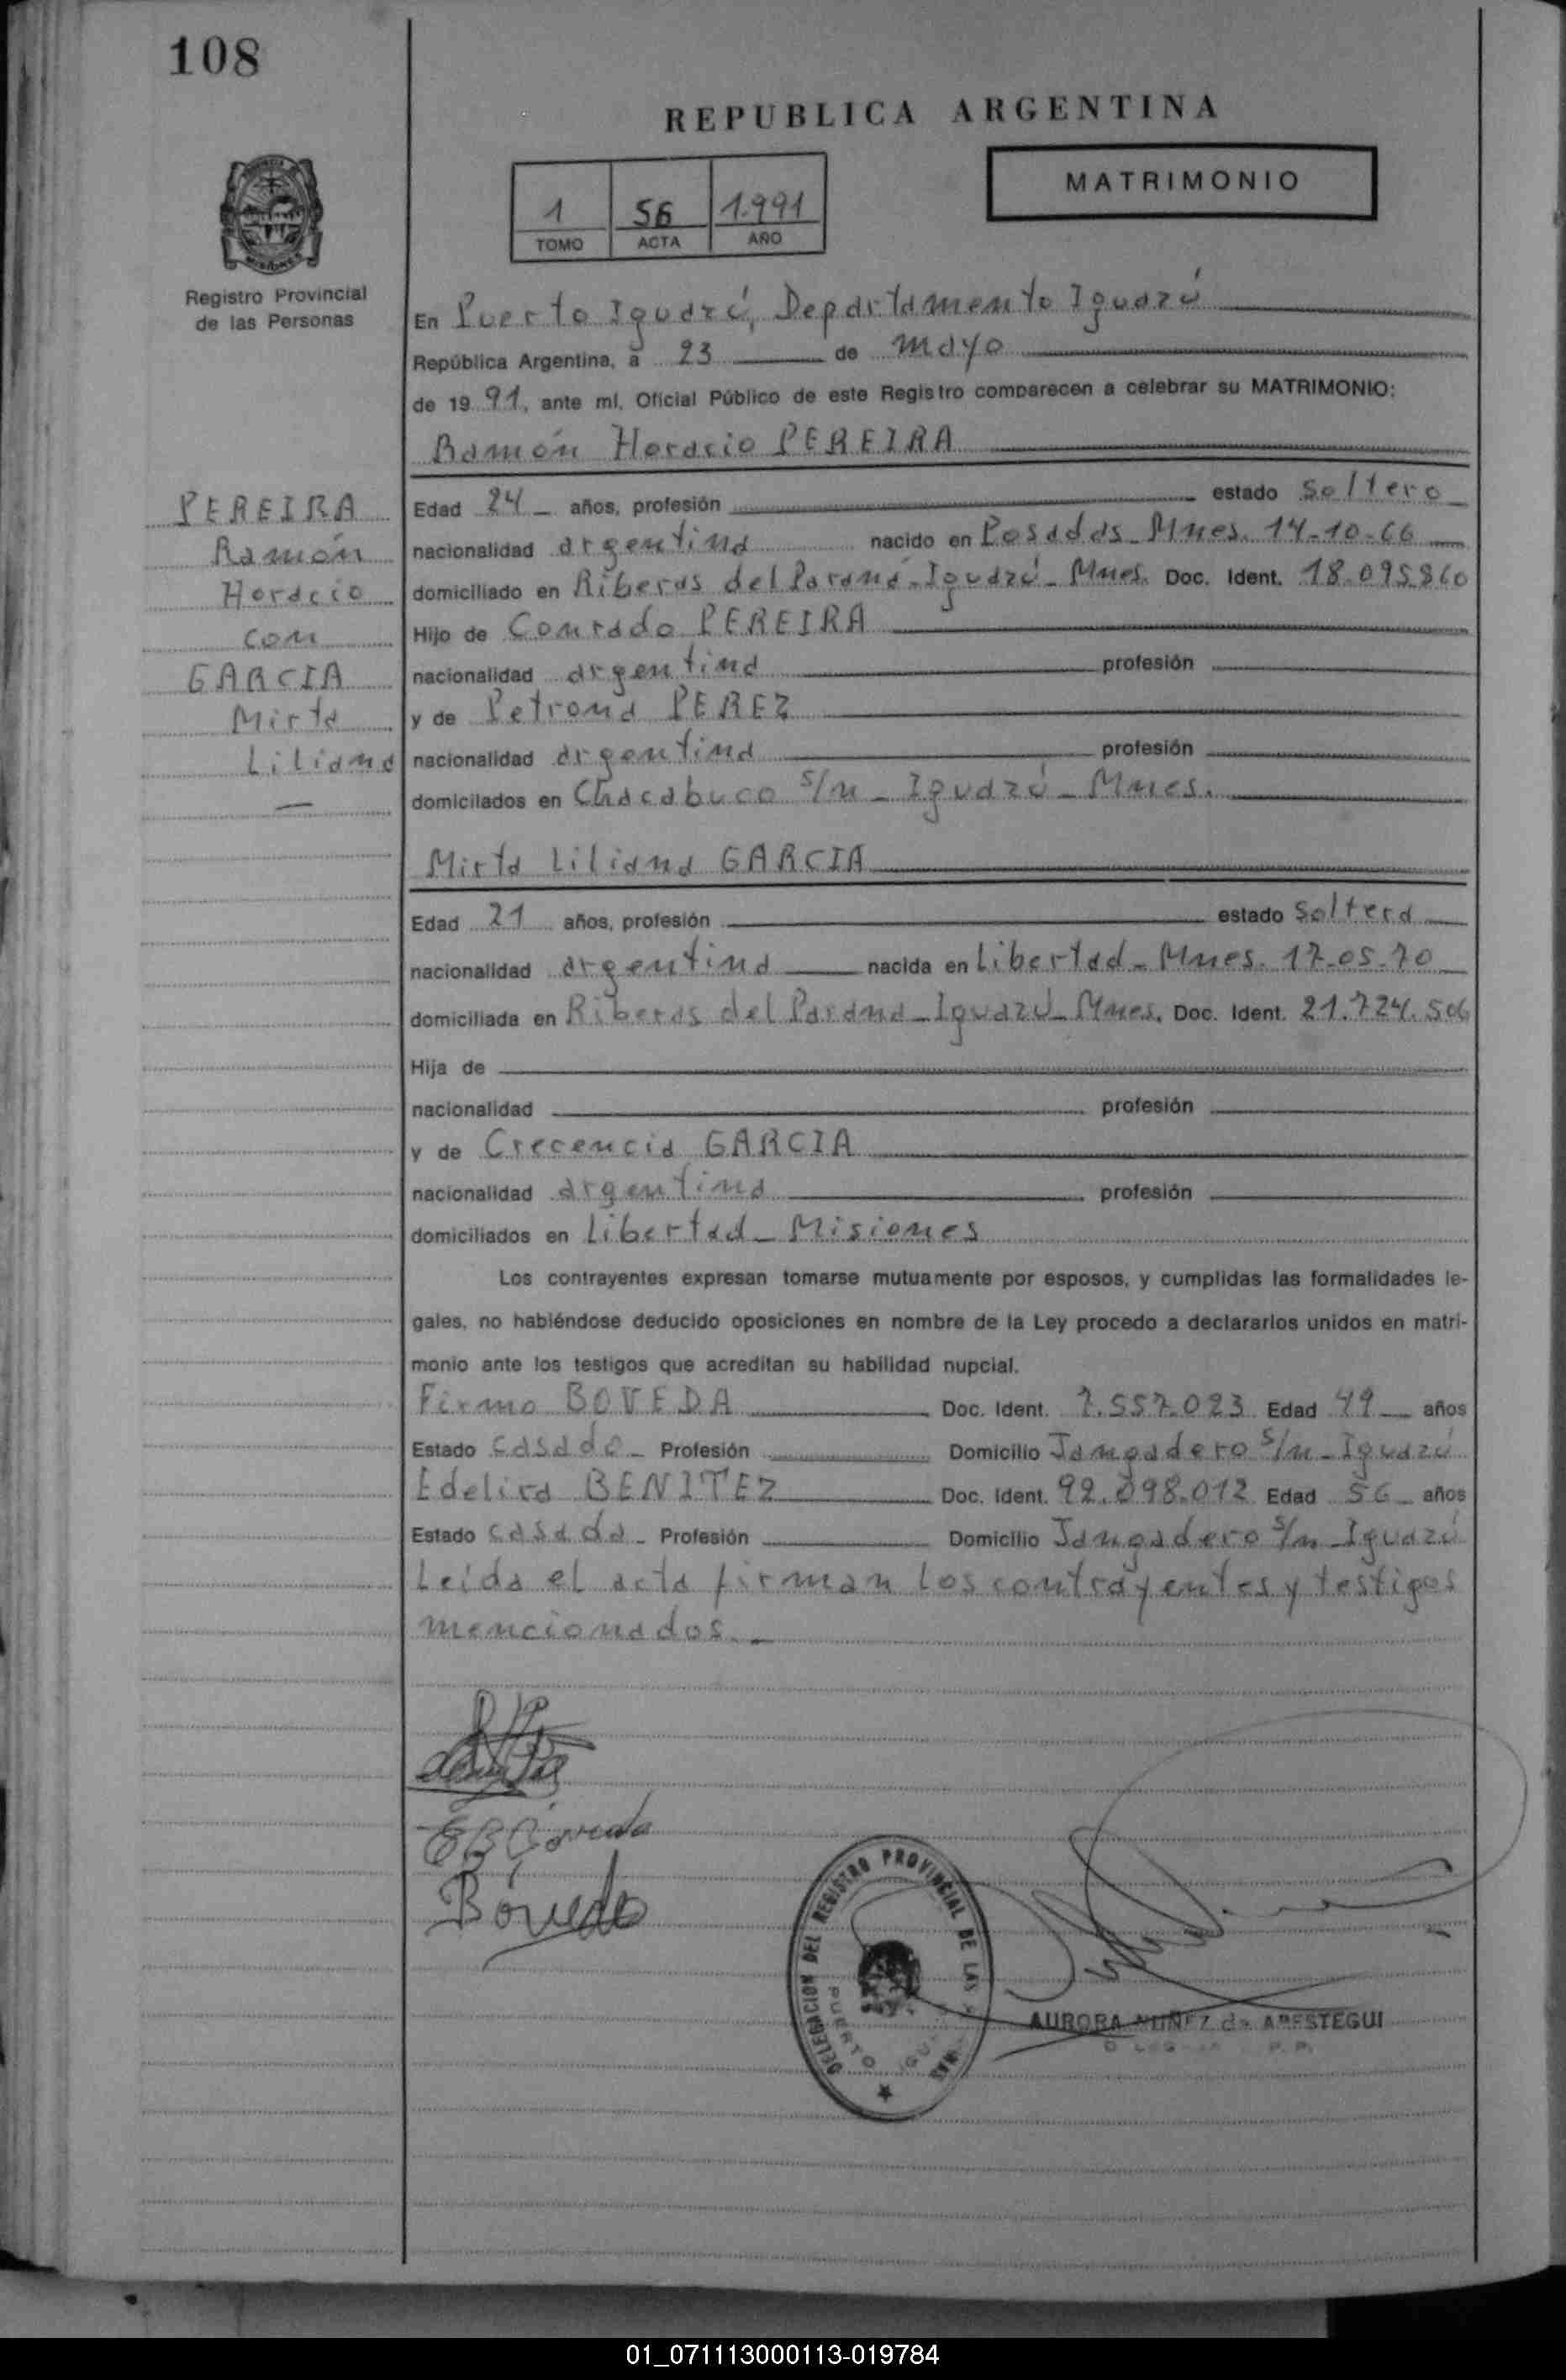 108
REPUBLICA ARGENTINA
MATRIMONIO
1 56 1.991
TOMO ACTA AÑO
Registro Provincial
de las Personas
En Puerto Iguazú, Departamento Iguazú
República Argentina, a 23 de mayo
de 19 91, ante mí, Oficial Público de este Registro comparecen a celebrar su MATRIMONIO:
Ramón Horacio PEREIRA
PEREIRA
Ramón
Horacio
con
GARCIA
Mirta
Liliana
Edad 24 años, profesión estado soltero
nacionalidad argentina nacido en Posadas Mnes. 14-10-66
domiciliado en Riberas del Paraná - Iguazú - Mnes. Doc. Ident. 18.095.860
Hijo de Conrado PEREIRA
nacionalidad argentina profesión
y de Petrona PEREZ
nacionalidad argentina profesión
domicilados en Chacabuco s/n - Iguazú - Mnes.
Mirta Liliana GARCIA
Edad 21 años, profesión estado soltera
nacionalidad argentina nacida en Libertad - Mnes. 17-05-70
domiciliada en Riberas del Paraná - Iguazú - Mnes. Doc. Ident. 21.724.506
Hija de
nacionalidad profesión
y de Crecencia GARCIA
nacionalidad argentina profesión
domiciliados en Libertad - Misiones
Los contrayentes expresan tomarse mutuamente por esposos, y cumplidas las formalidades le-
gales, no habiéndose deducido oposiciones en nombre de la Ley procedo a declararlos unidos en matri-
monio ante los testigos que acreditan su habilidad nupcial.
Firmo BOVEDA Doc. Ident. 7.557.023 Edad 49 años
Estado casado - Profesión Domicilio Jangadero s/n - Iguazú
Edelira BENITEZ Doc. Ident. 92.098.012 Edad 56 años
Estado casada - Profesión Domicilio Jangadero s/n - Iguazú
Leída el acta firman los contrayentes y testigos
mencionados.
Bóveda
DELEGACION DEL REGISTRO PROVINCIAL DE LAS
PUERTO
AURORA NUÑEZ de ARESTEGUI
01_071113000113-019784